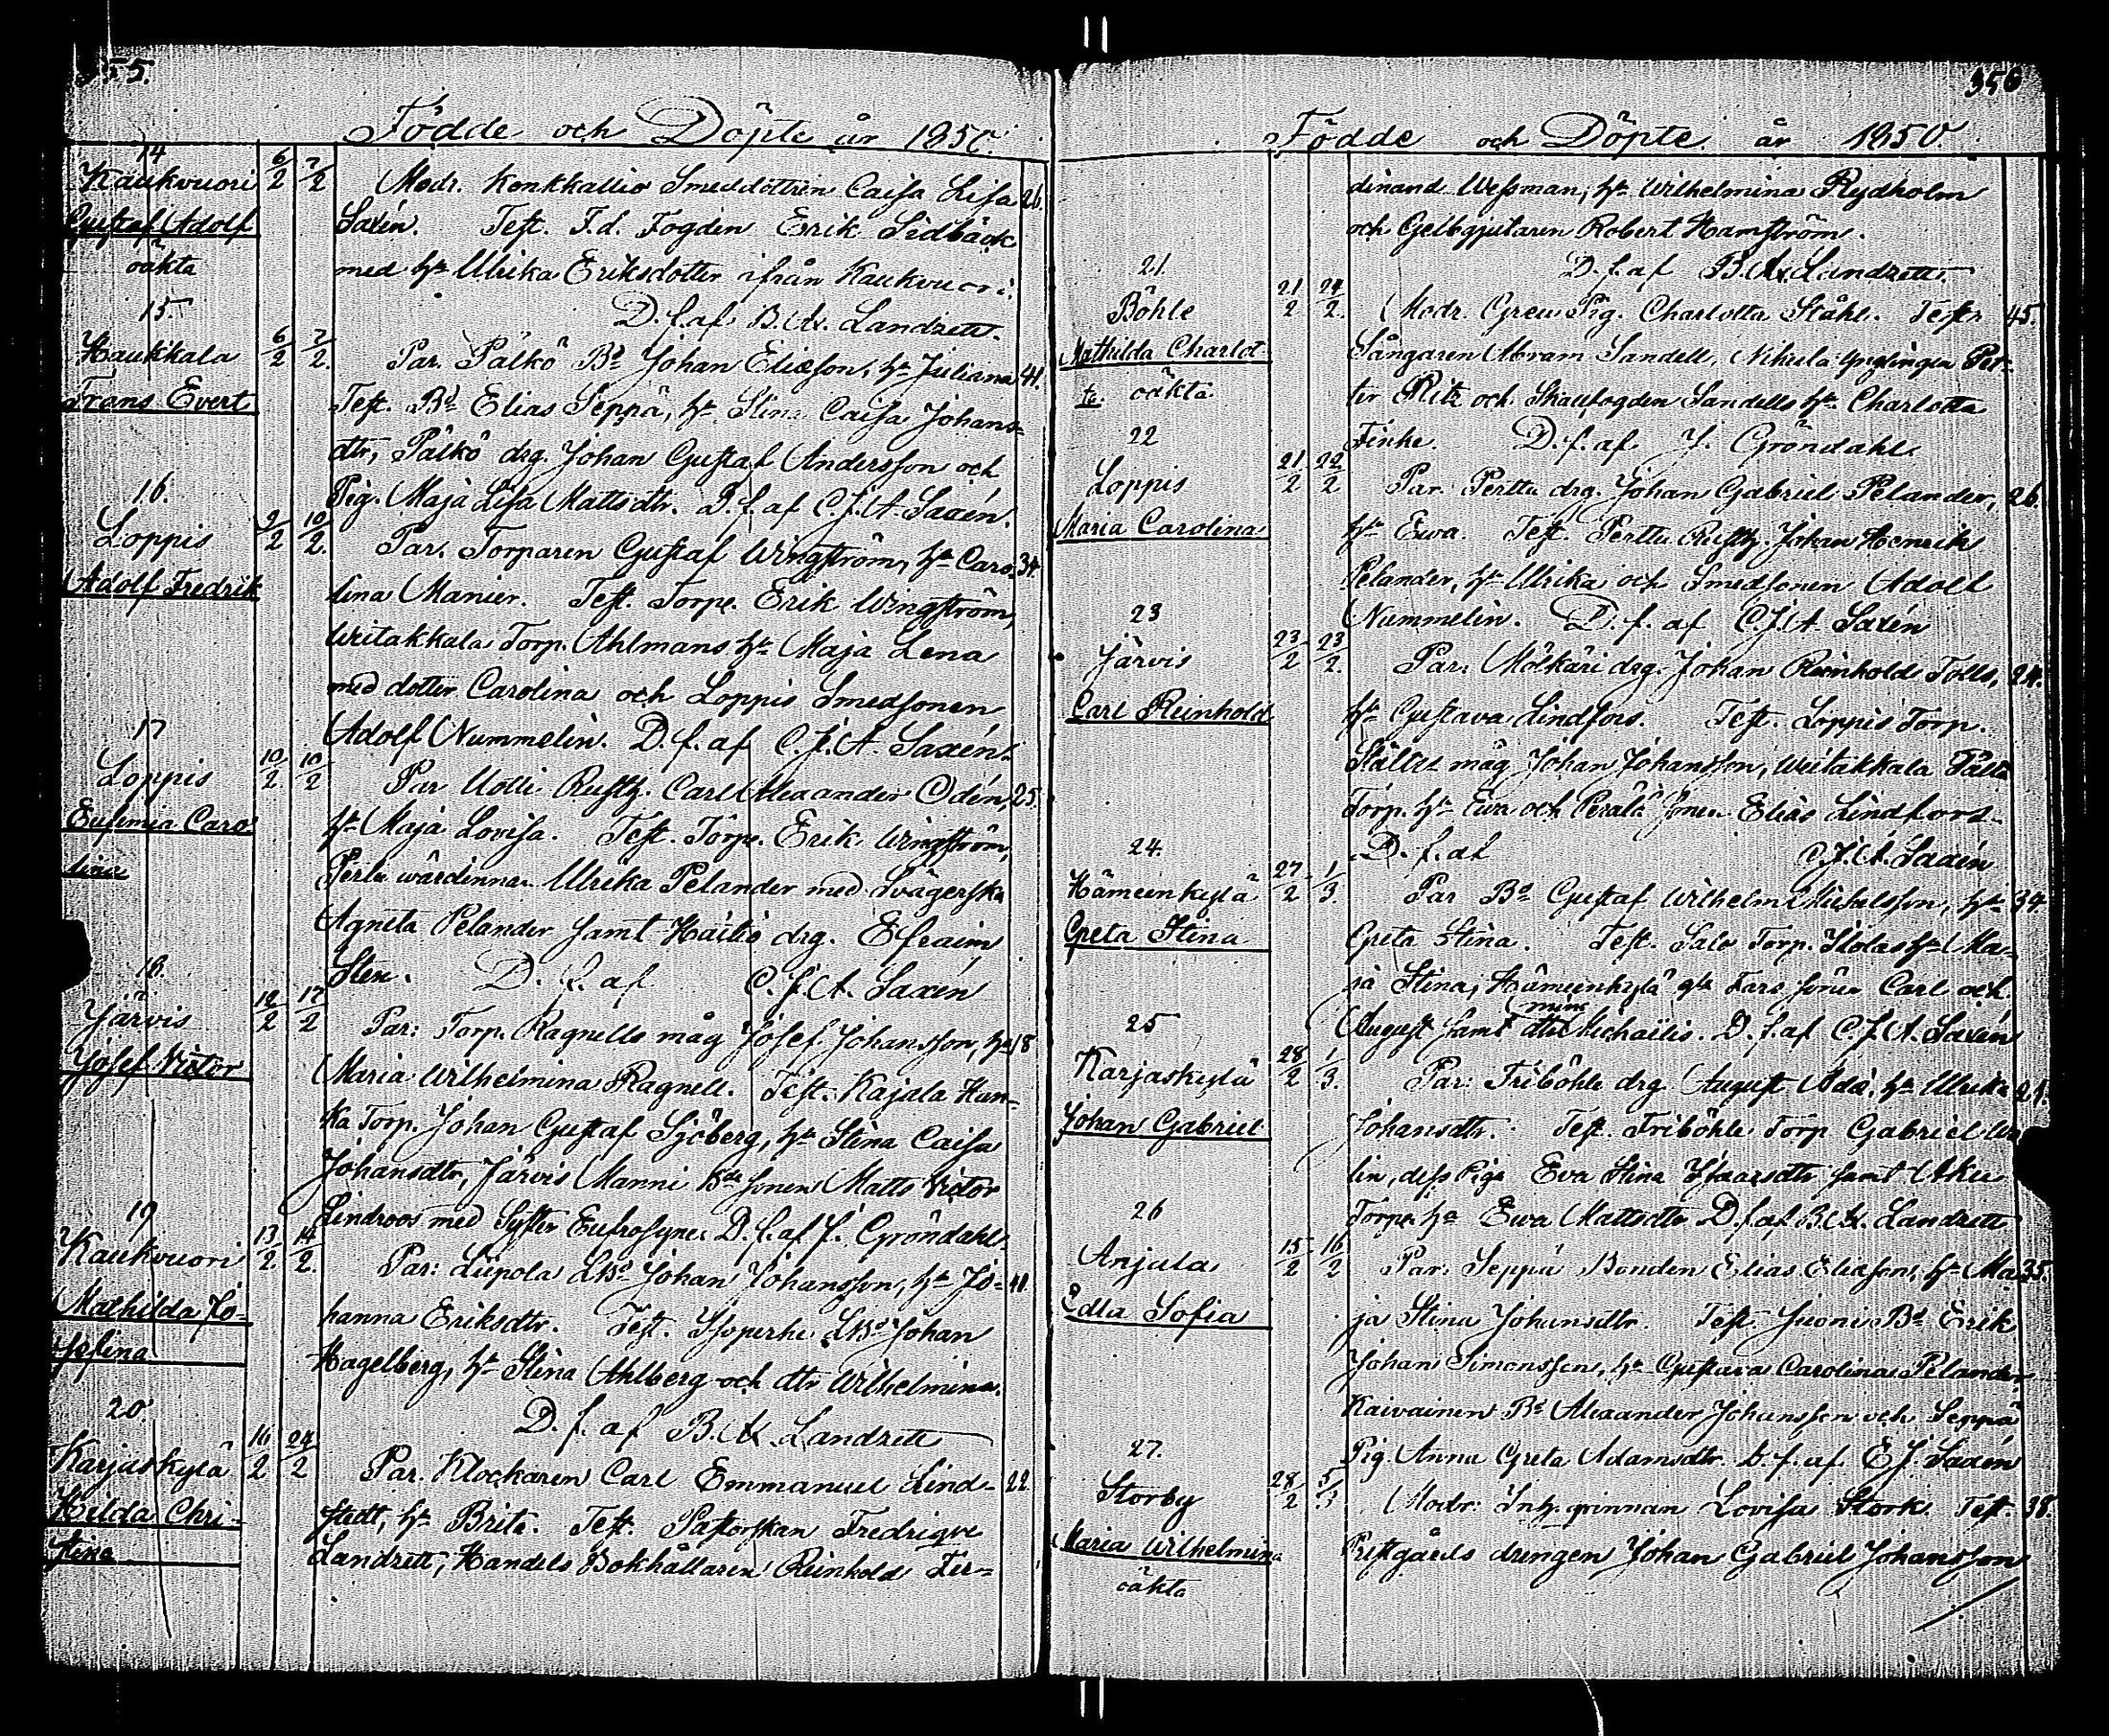 55.
Födde och Döpte år 1850.
14
Kaukvuori 6/2 7/2
Gustaf Adolf
oäkta
Modr. Konkkallio Smeddottren Caisa Lisa 26.
Saxén. Test. F.d. Fogden Erik Sidbäck
med h:u Ulrika Eriksdotter ifrån Kaukvuori.
D. f. af B. A. Landzett.
15.
Haukkala 6/2 7/2.
Frans Evert
Par. Pälkö B:d Johan Eliæson, h:u Juliana 41.
Test. B:d Elias Seppä, h:u Stina Caisa Johans-
dtr, Pälkö drg. Johan Gustaf Andersson och
Pig. Maja Lisa Mattsdtr. D. f. af C. J. A. Saxén.
16.
Loppis 9/2 10/2.
Adolf Fredrik
Par. Torparen Gustaf Wingström, h:u Caro- 34.
lina Manier. Test. Torp. Erik Wingström,
Writakkala Torp. Ahlmans h:u Maja Lena
med dotter Carolina och Loppis Smedsonen
Adolf Nummelin. D. f. af C. J. A. Saxén.
17
Loppis 10/2. 10/2
Eufemia Caro-
lina
Par Uotti Rusth. Carl Alexander Odén, 25.
h:u Maja Lovisa. Test. Torp. Erik Wingström,
Perttu wärdinnan Ulrika Pelander med Svägerska
Agneta Pelander samt Hailiö drg. Efraim
Sten. D. f. af C. J. A. Saxén
18.
Järvis 12/2 17/2
Josef Victor
Par: Torp. Ragnells måg Josef Johansson, h:u 18
Maria Wilhelmina Ragnell. Test. Kajala Hun-
ka Torp. Johan Gustaf Sjöberg, h:u Stina Caisa
Johansdtr, Järvis Manni B:de sonen Matts Victor
Lindroos med Syster Eufrosyne. D. f. af J. Gröndahl.
19
Kaukvuori 13/2. 14/2.
Mathilda Jo-
sefina
Par: Liipola LB:d Johan Johansson, h:u Jo- 41.
hanna Eriksdtr. Test. Isoperhe LB:d Johan
Hagelberg, h:u Stina Ahlberg och dtr Wilhelmina.
D. f. af B. A. Landzett
20.
Karjaskylä 16/2 24/2
Hilda Chri-
stina
Par. Klockaren Carl Emmanuel Lind- 22.
stedt, h:u Brita. Test. Pastorskan Fredrique
Landzett, Handels Bokhållaren Reinhold Fer-
356
Födde och Döpte år 1850.
dinand Wessman, h:u Wilhelmina Rydholm
och Gelbgjutaren Robert Hamström.
D. f. af B. A. Landzett.
21.
Böhle 21/2 24/2.
Mathilda Charlot-
te. oäkta
Modr. Greu Pig. Charlotta Ståhl. Test. 45.
Sångaren Abram Sandell, Nikula Ynglingen Pet-
ter Ritz och Skaufogden Sandells h:u Charlotta
Finke. D. f. af J. Gröndahl.
22
Loppis 21/2 22/2
Maria Carolina
Par. Perttu drg. Johan Gabriel Pelander, 26.
h:u Ewa. Test. Perttu Rusth. Johan Henrik
Pelander, h:u Ulrika och Smedsonen Adolf
Nummelin. D. f. af C. J. A. Saxén
23
Järvis 23/2 23/2.
Carl Reinhold
Par. Mälkäri drg. Johan Reinhold Tolls, 24.
h:u Gustava Lindfors. Test. Loppis Torp.
Ställes måg Johan Johansson, Writakkala Fälta
Torp. h:u Ewa och Perälä Sonen Elias Lindfors.
D. f. af C. J. A. Saxén
24.
Hämeenkylä 27/2 1/3.
Greta Stina
Par B:d Gustaf Wilhelm Michelsson, h:u 34.
Greta Stina. Test. Salo Torp. Ilolas h:u Ma-
ja Stina, Hämeenkylä gla Fars söner Carl och
August samt dtr Mina Michaïlis. D. f. af C. J. A. Saxén
25
Karjaskylä 28/2 1/3.
Johan Gabriel
Par: Friböhle drg. August Ada, h:u Ulrika 21.
Johansdtr. Test. Friböhle Torp Gabriel
lin, dess Piga Eva Stina Isaacsdtr samt Aku
Torp. h:u Ewa Mattsdtr D. f. af B. A. Landzett
26
Anjala 15/2 16/2
Edla Sofia
Par. Seppä Bonden Elias Eliæson, h:u Ma- 35.
ja Stina Johansdtr. Test. Juoni B:d Erik
Johan Simonsson, h:u Gustava Carolina Pelander,
Kaivainen B:d Alexander Johansson och Seppä
Pig. Anna Greta Adamsdtr. D. f. af E J. Saxén
27.
Storby 28/2 5/3
Maria Wilhelmina
oäkta
Modr. Inh. qvinnan Lovisa Stork. Test. 38.
Prestgårds drengen Johan Gabriel Johansson